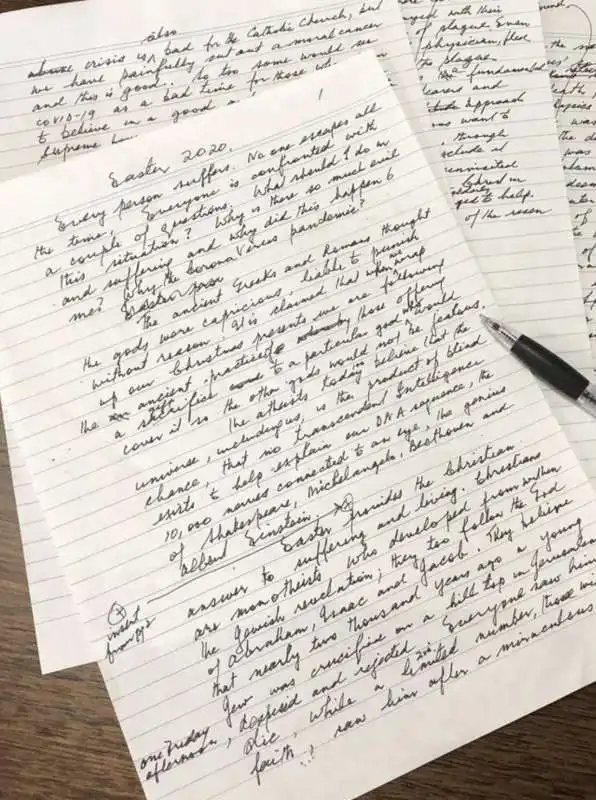 also
abuse crisis is bad for the Catholic Church, but
we have painfully cut out a moral cancer
and this is good.. So too some would see
COVID-19 as a bad time for those wh
to believe in a good a
supreme
with their
of plague. Even
physician, fled
the plague.
fundamental
and
approach
want to
through
of the reason
1
Easter 2020.
Every person suffers. No one escapes all
the time. Everyone is confronted with
a couple of questions. What should I do in
this situation? Why is there so much evil
and suffering and why did this happen to
me? Why the corona virus pandemic?
The ancient Greeks and Romans thought
the gods were capricious, liable to punish
without reason. It is claimed that when we wrap
up our Christmas presents we are following
the ancient practise of those offering
a sacrifice to a particular god, who would
cover it so the other gods would not be jealous.
The atheists today believe that the
universe, including us, is the product of blind
chance, that no transcendent Intelligence
exists to help explain our DNA sequence, the
10,000 nerves connected to an eye, the genius
of Shakespeare, Michelangelo, Beethoven and
Albert Einstein.
Easter provides the Christian
insert
from pg 2
answer to suffering and living. Christians
are monotheists who developed from within
the Jewish revelation; they too follow the God
of Abraham, Isaac and Jacob. They believe
that nearly two thousand years ago a young
Jew was crucified on a hill top in Jerusalem
one Friday
afternoon, despised and rejected. Everyone saw him
die, while a limited number, those with
faith, saw him after a miraculous